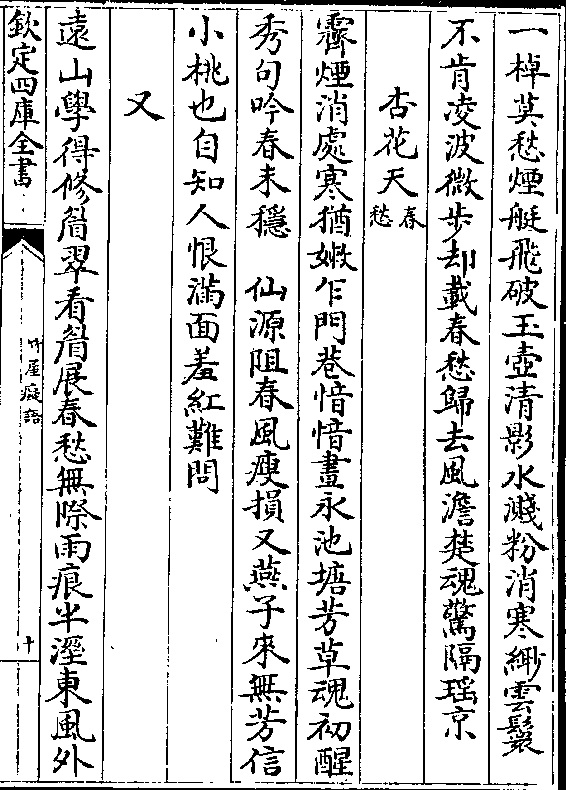 一棹莫愁煙艇飛破玉壺清影水濺粉消寒緲雲鬟
不肯凌波微步却載春愁歸去風澹楚魂驚隔瑶京
杏花天春愁
霽煙消處寒猶嫩乍門巷愔愔晝永池塘芳草魂初醒
秀句吟春未穩　仙源阻春風瘦損又燕子來無芳信
小桃也自知人恨滿面羞紅難問
又
遠山學得修眉翠看眉展春愁無際雨痕半溼東風外
欽定四庫全書
竹屋癡語
十